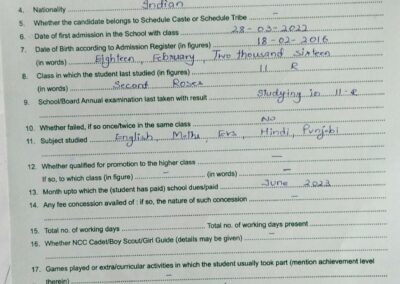 4. Nationality Indian
5. Whether the candidate belongs to Schedule Caste or Schedule Tribe –
6. Date of first admission in the School with class 28-03-2022
7. Date of Birth according to Admission Register (in figures) 18-02-2016
(in words) Eighteen, February, Two thousand Sixteen
8. Class in which the student last studied (in figures) II R
(in words) Second Roses
9. School/Board Annual examination last taken with result Studying in II-R
10. Whether failed, if so once/twice in the same class NO
11. Subject studied English, Maths, Evs, Hindi, Punjabi
12. Whether qualified for promotion to the higher class –
If so, to which class (in figure) – (in words) –
13. Month upto which the (student has paid) school dues/paid June 2023
14. Any fee concession availed of : if so, the nature of such concession –
15. Total no. of working days Total no. of working days present
16. Whether NCC Cadet/Boy Scout/Girl Guide (details may be given) –
17. Games played or extra/curricular activities in which the student usually took part (mention achievement level
therein) –